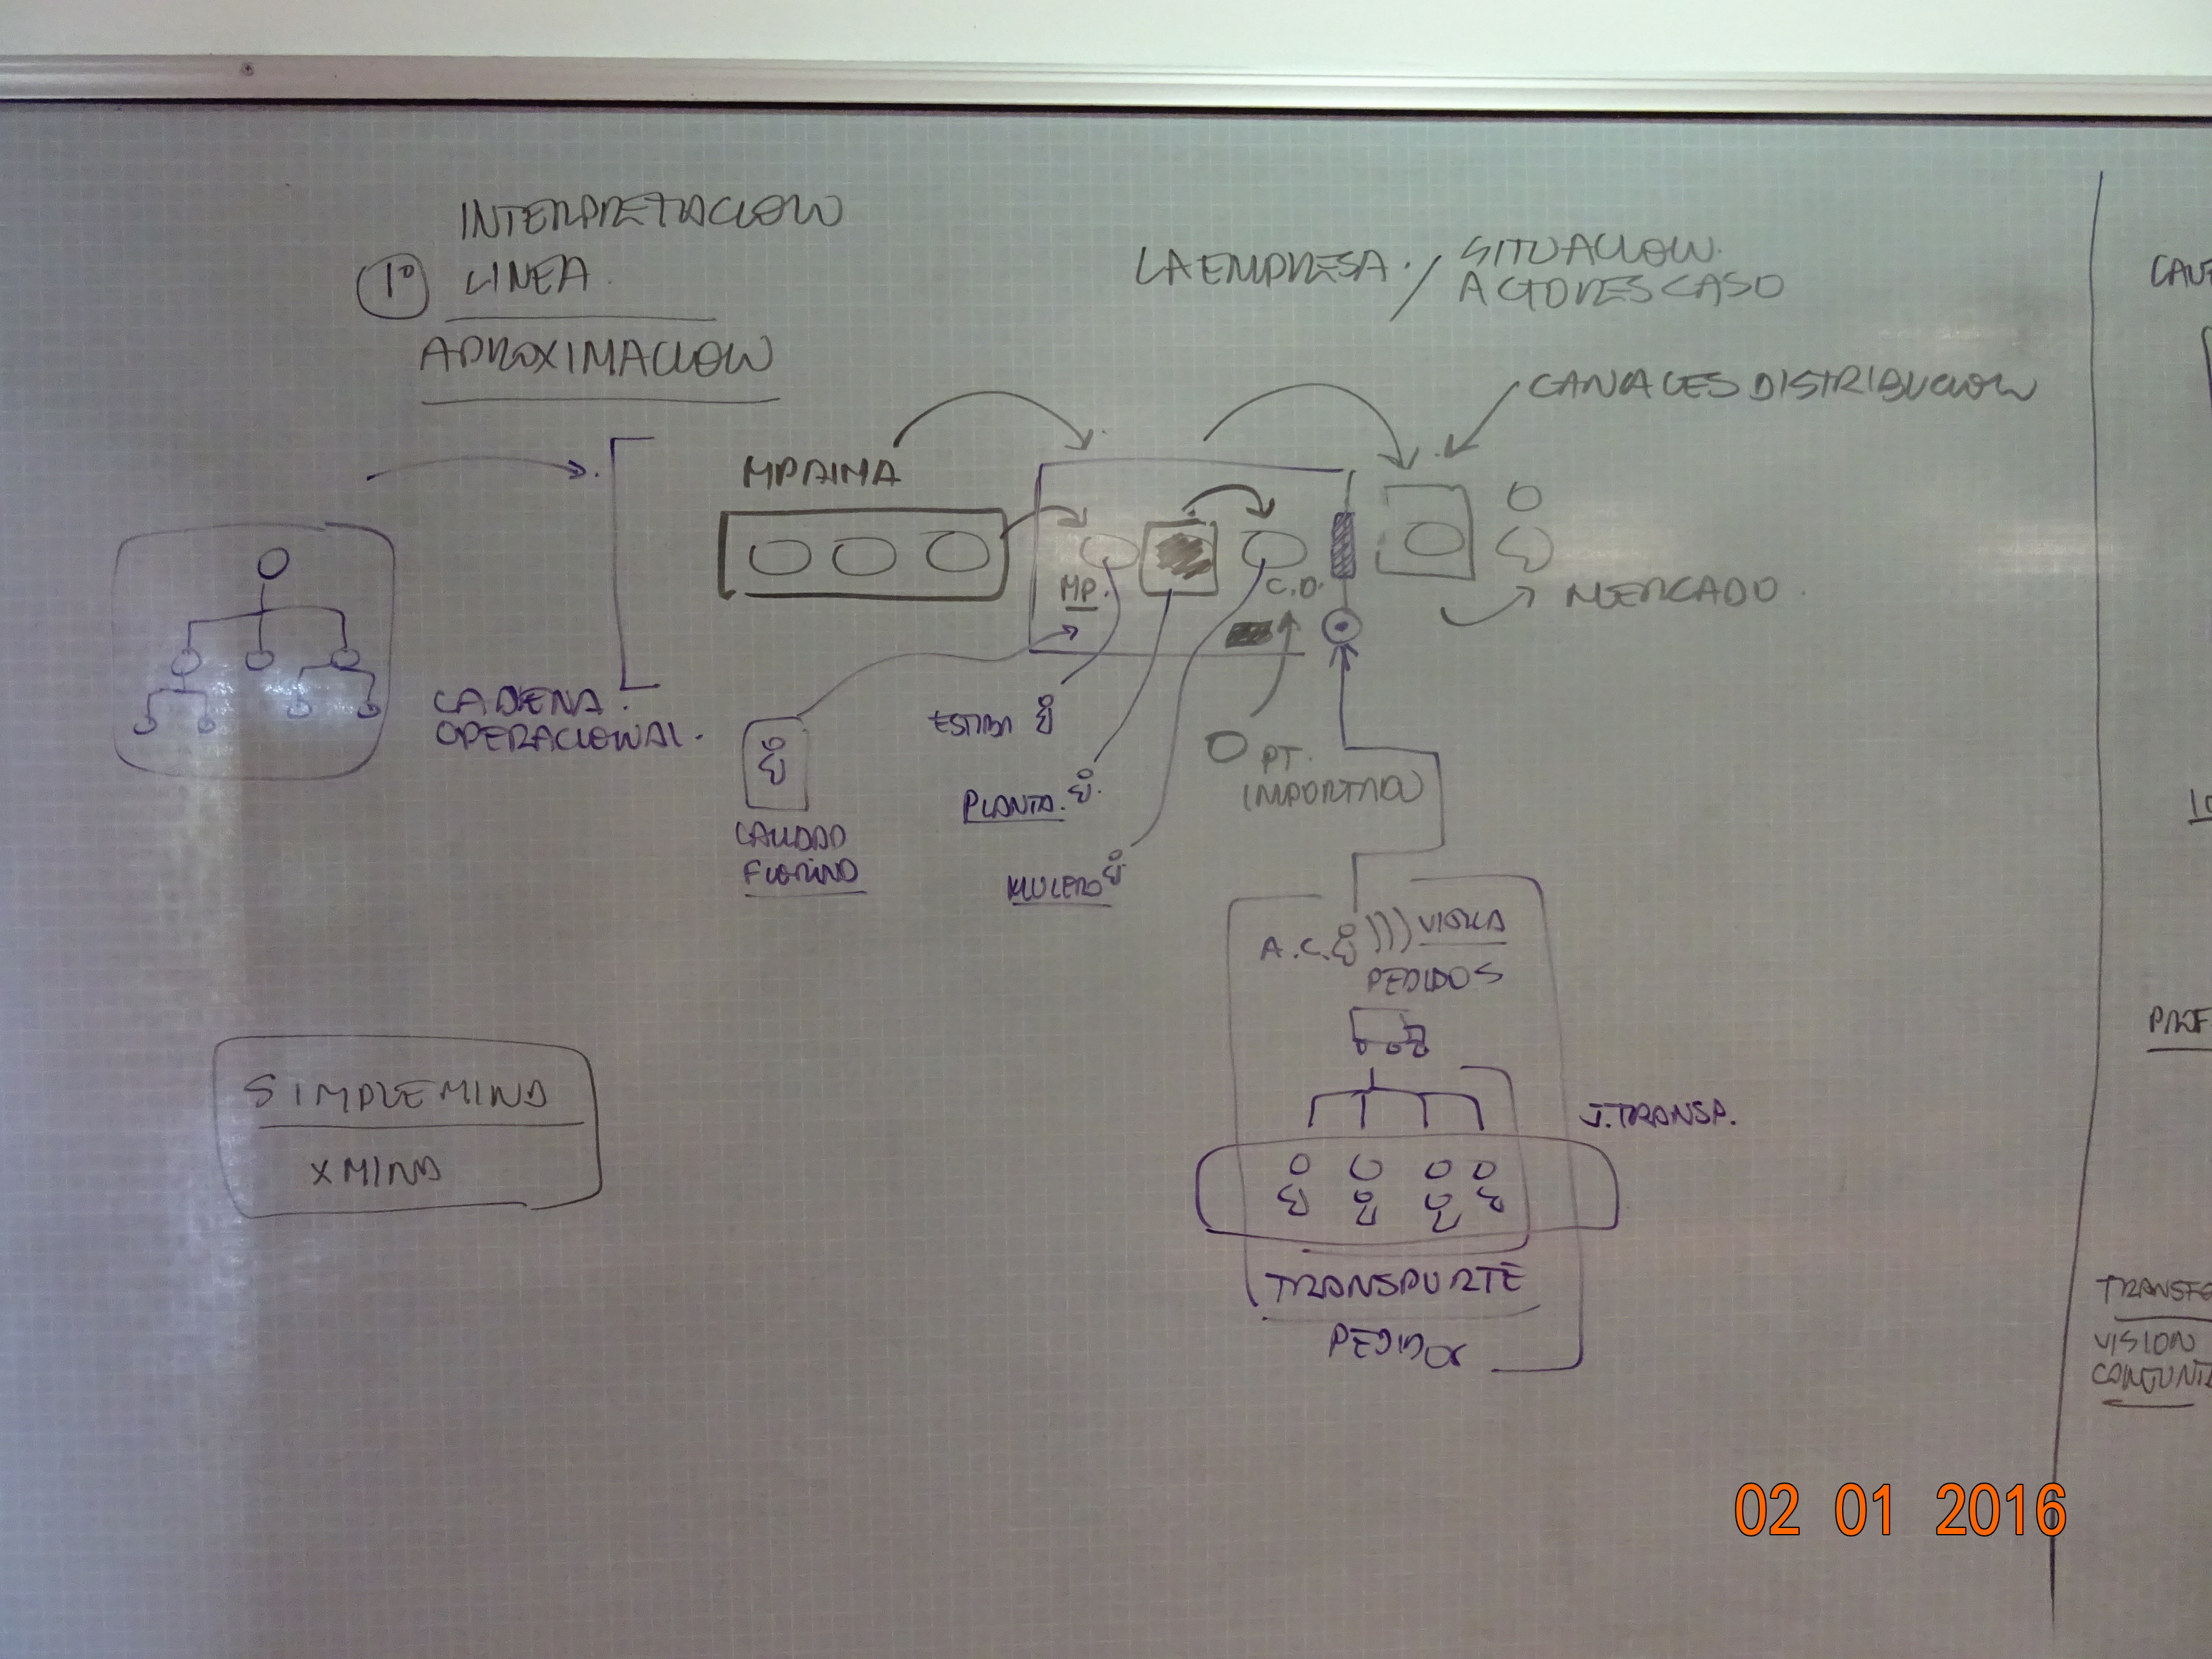 INTERPRETACION
1º LINEA
APROXIMACION
LA EMPRESA. / SITUACION.
ACTORES CASO
CANALES DISTRIBUCION
MPRIMA
MP.
C.D.
MERCADO
CADENA
OPERACIONAL.
ESTIBA
PT.
IMPORTADO
PLANTA.
CALIDAD
MULERO
A.C. VIGILA
PEDIDOS
J. TRANSP.
TRANSPORTE
PEDIDOS
SIMPLEMIND
XMIND
TRANSFE
VISION
CONJUNTA
02 01 2016